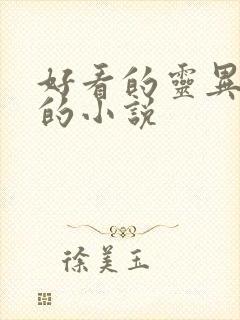 好看的靈異
的小説
徐美玉